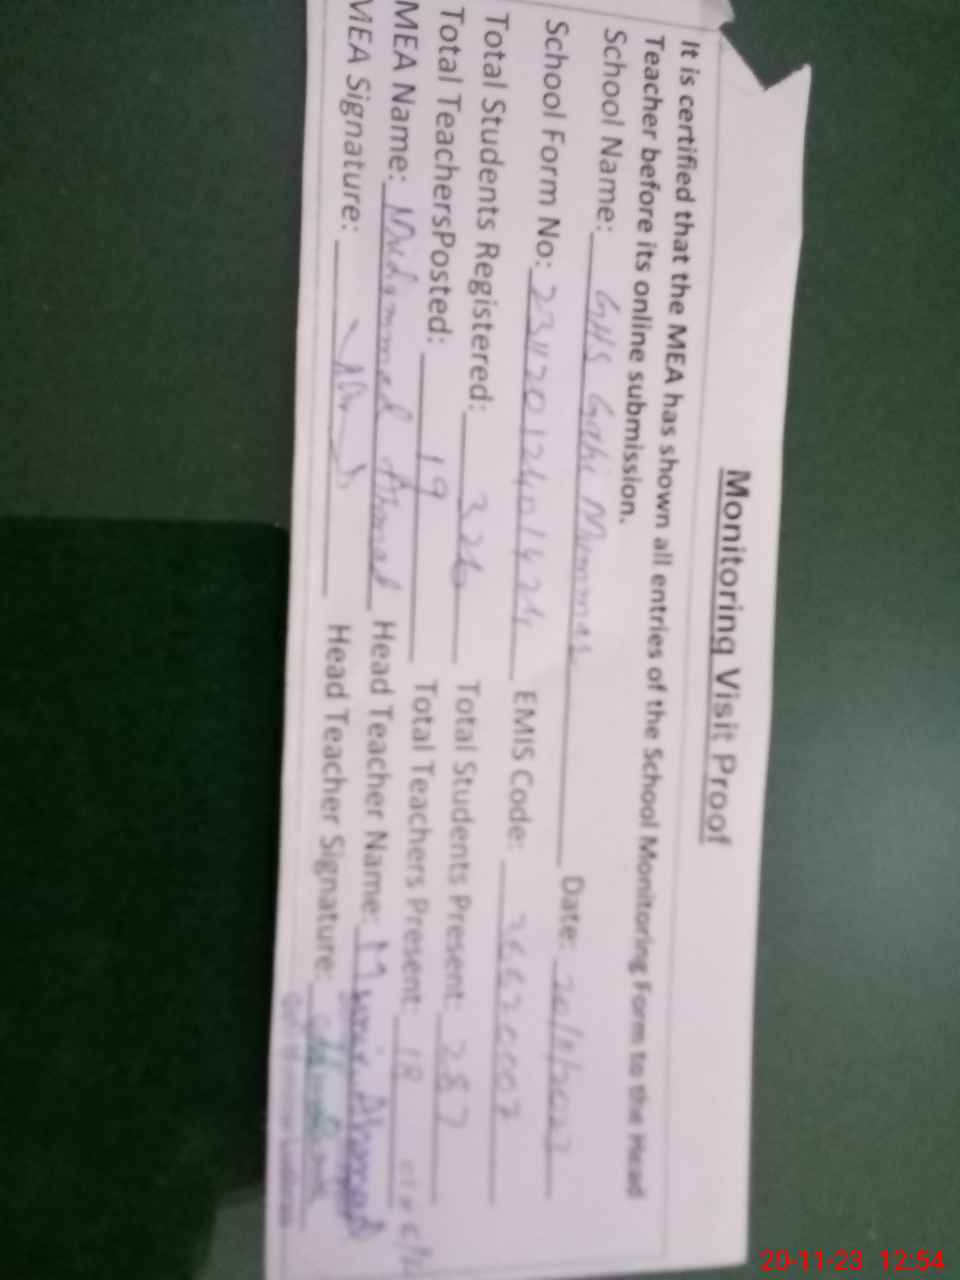 Monitoring Visit Proof
It is certified that the MEA has shown all entries of the School Monitoring Form to the Head
Teacher before its online submission.
School Name: GHS Gahi Mummar Date: 20/11/2023
School Form No: 23112012401424 EMIS Code:
Total Students Registered: 326 Total Students Present: 287
Total TeachersPosted: 19 Total Teachers Present: 18
MEA Name: Muhammad Ahmad Head Teacher Name: Munir Ahmad
MEA Signature: Head Teacher Signature:
20-11-23 12:54